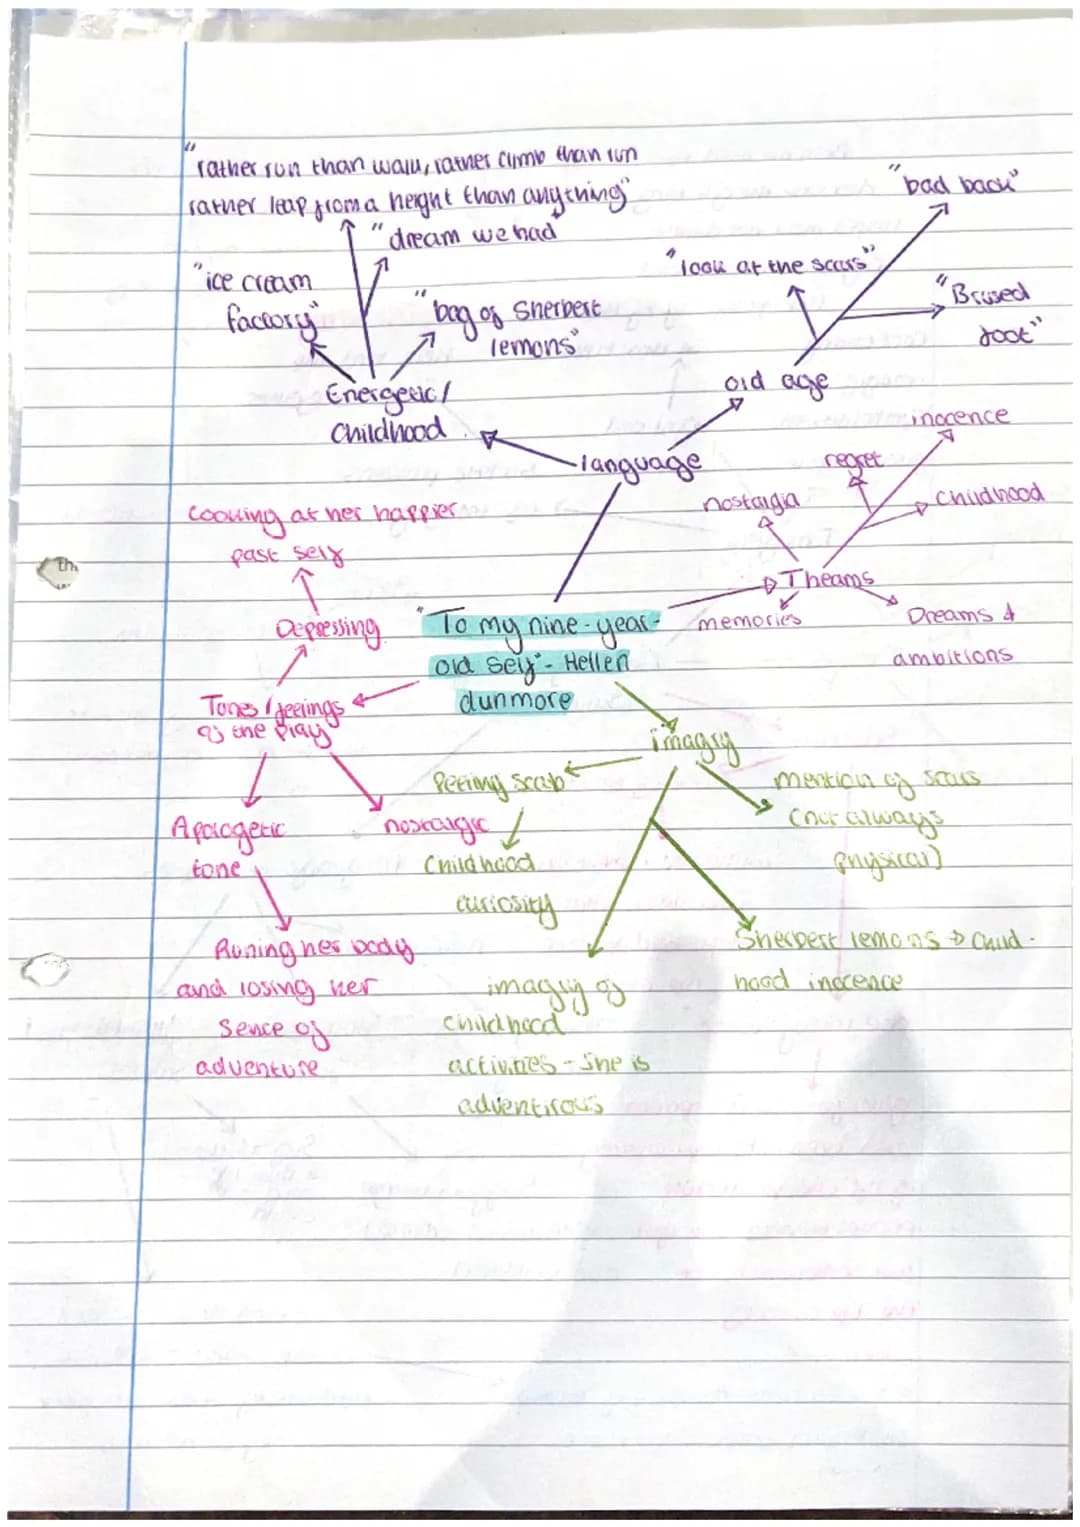 "rather run than walk, rather climb than run
rather leap from a height than anything"
"dream we had"
"ice cream
factory"
"bag of Sherbert
lemons"
Energetic/
Childhood
"bad back"
"look at the scars"
"Brused
foot"
old age
language
inocence
regret
nostalgia
Childhood
Theams
memories
Dreams &
ambitions
Looking at her happier
past self
Depressing
"To my nine-year-
old self" - Hellen
dunmore
Tones / feelings
of the play
Apologetic
tone
nostalgic
Runing her body
and losing her
Sence of
adventure
imagry
Peeling scab
Childhood
curiosity
mention of scars
(not always
physical)
Sherbert lemons → Child-
hood inocence
imagry of
childhood
activities - She is
adventirous
th